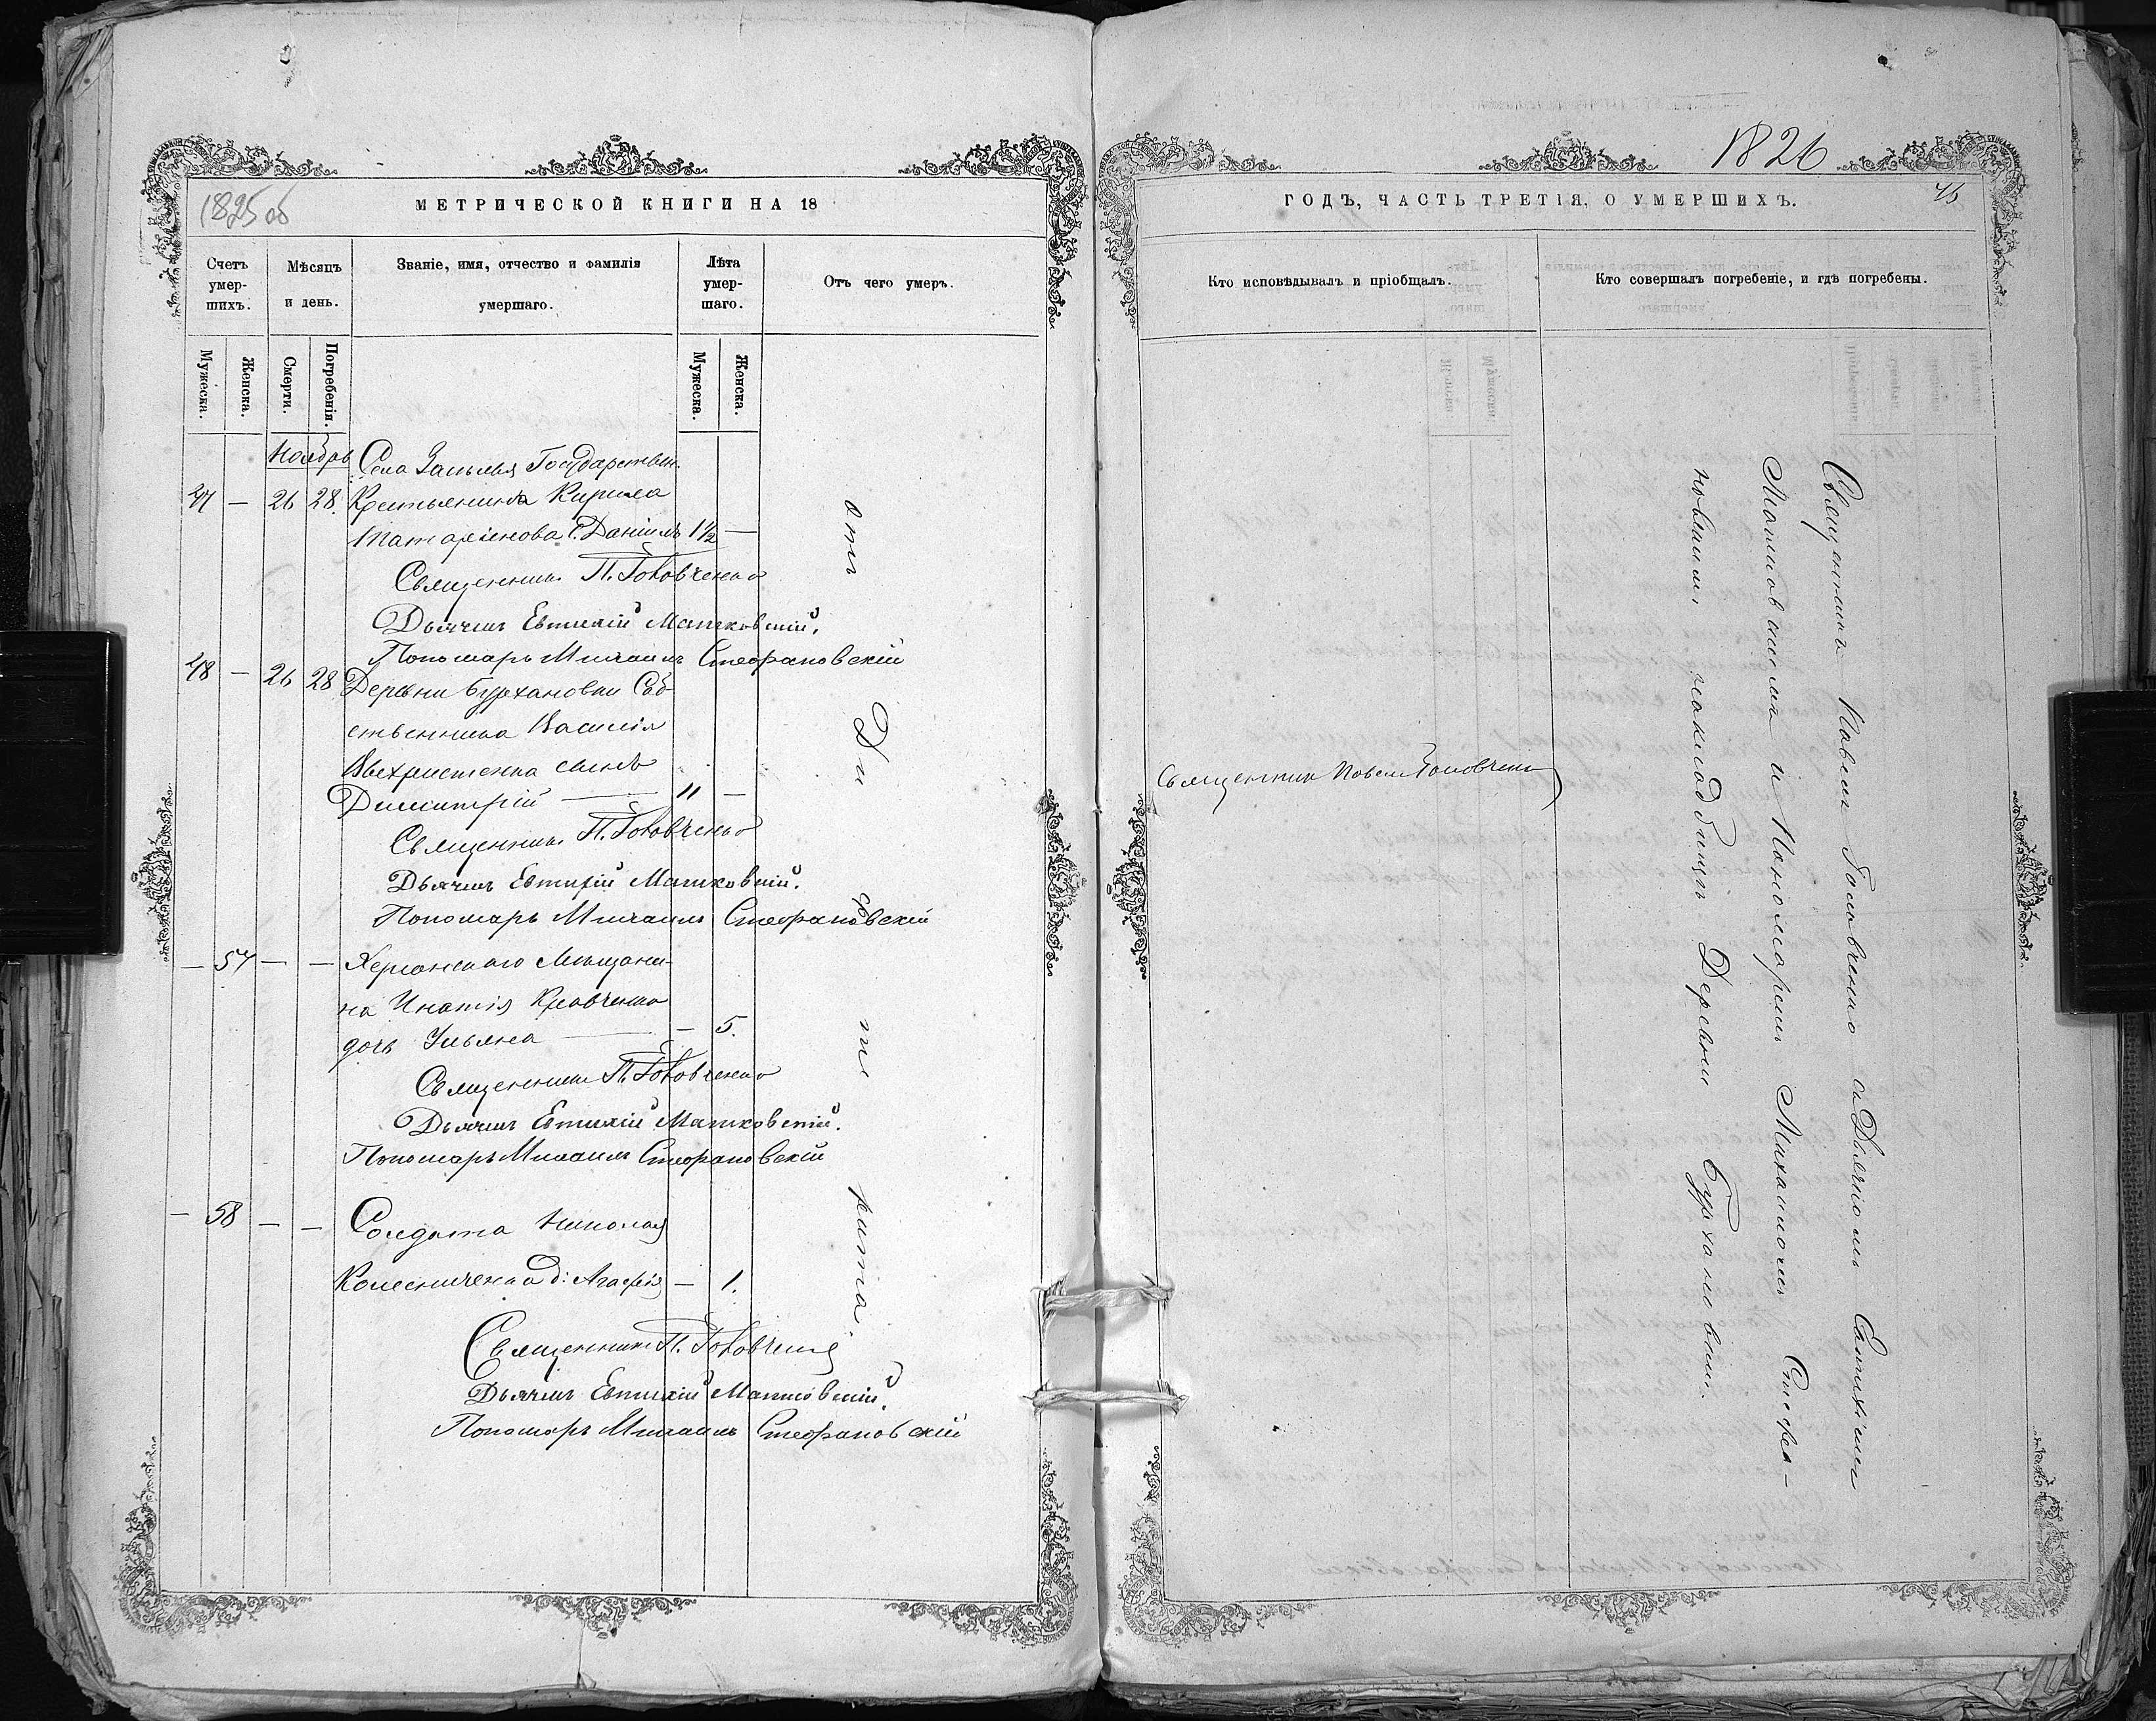 1825 об
МЕТРИЧЕСКОЙ КНИГИ НА 18
Счетъ умер-шихъ.
Мѣсяцъ и день.
Званіе, имя, отчество и фамилія умершаго.
Лѣта умер-шаго.
Отъ чего умеръ.
Мужеска.
Женска.
Смерти.
Погребенія.
Мужеска.
Женска.
Ноябрь Села Государствен.
47 — 26 28. Крестьянина Кирила
С. Даніилъ 1½ —
Священникъ П. Головченко
Дьячекъ Евтихій Матковскій.
Пономарь Михаилъ Стефановскій
48 — 26 28 Деревни Бурхановки Соб-
ственника Василія
сынъ
Димитрій — 11 —
Священникъ П. Головченко
Дьячекъ Евтихій Матковскій.
Пономарь Михаилъ Стефановскій
— 57 — — Херсонскаго Мѣщани-
на Игнатія Кравченка
дочь Ульяна — — 5.
Священникъ П. Головченко
Дьячекъ Евтихій Матковскій.
Пономарь Михаилъ Стефановскій
— 58 — — Солдата Николая
Колесниченка д: Агафія — 1.
Священникъ П. Головченко
Дьячекъ Евтихій Матковскій.
Пономарь Михаилъ Стефановскій
отъ Дифтирита.
1826
45
ГОДЪ, ЧАСТЬ ТРЕТІЯ, О УМЕРШИХЪ.
Кто исповѣдывалъ и пріобщалъ.
Кто совершалъ погребеніе, и гдѣ погребены.
Священникъ Павелъ Головченко
Священникъ Павелъ Головченко съ Дьячкомъ Евтихіемъ
Матковскимъ и Пономаремъ Михаиломъ Стефа-
новскимъ на кладбищѣ Деревни Бурхановки.